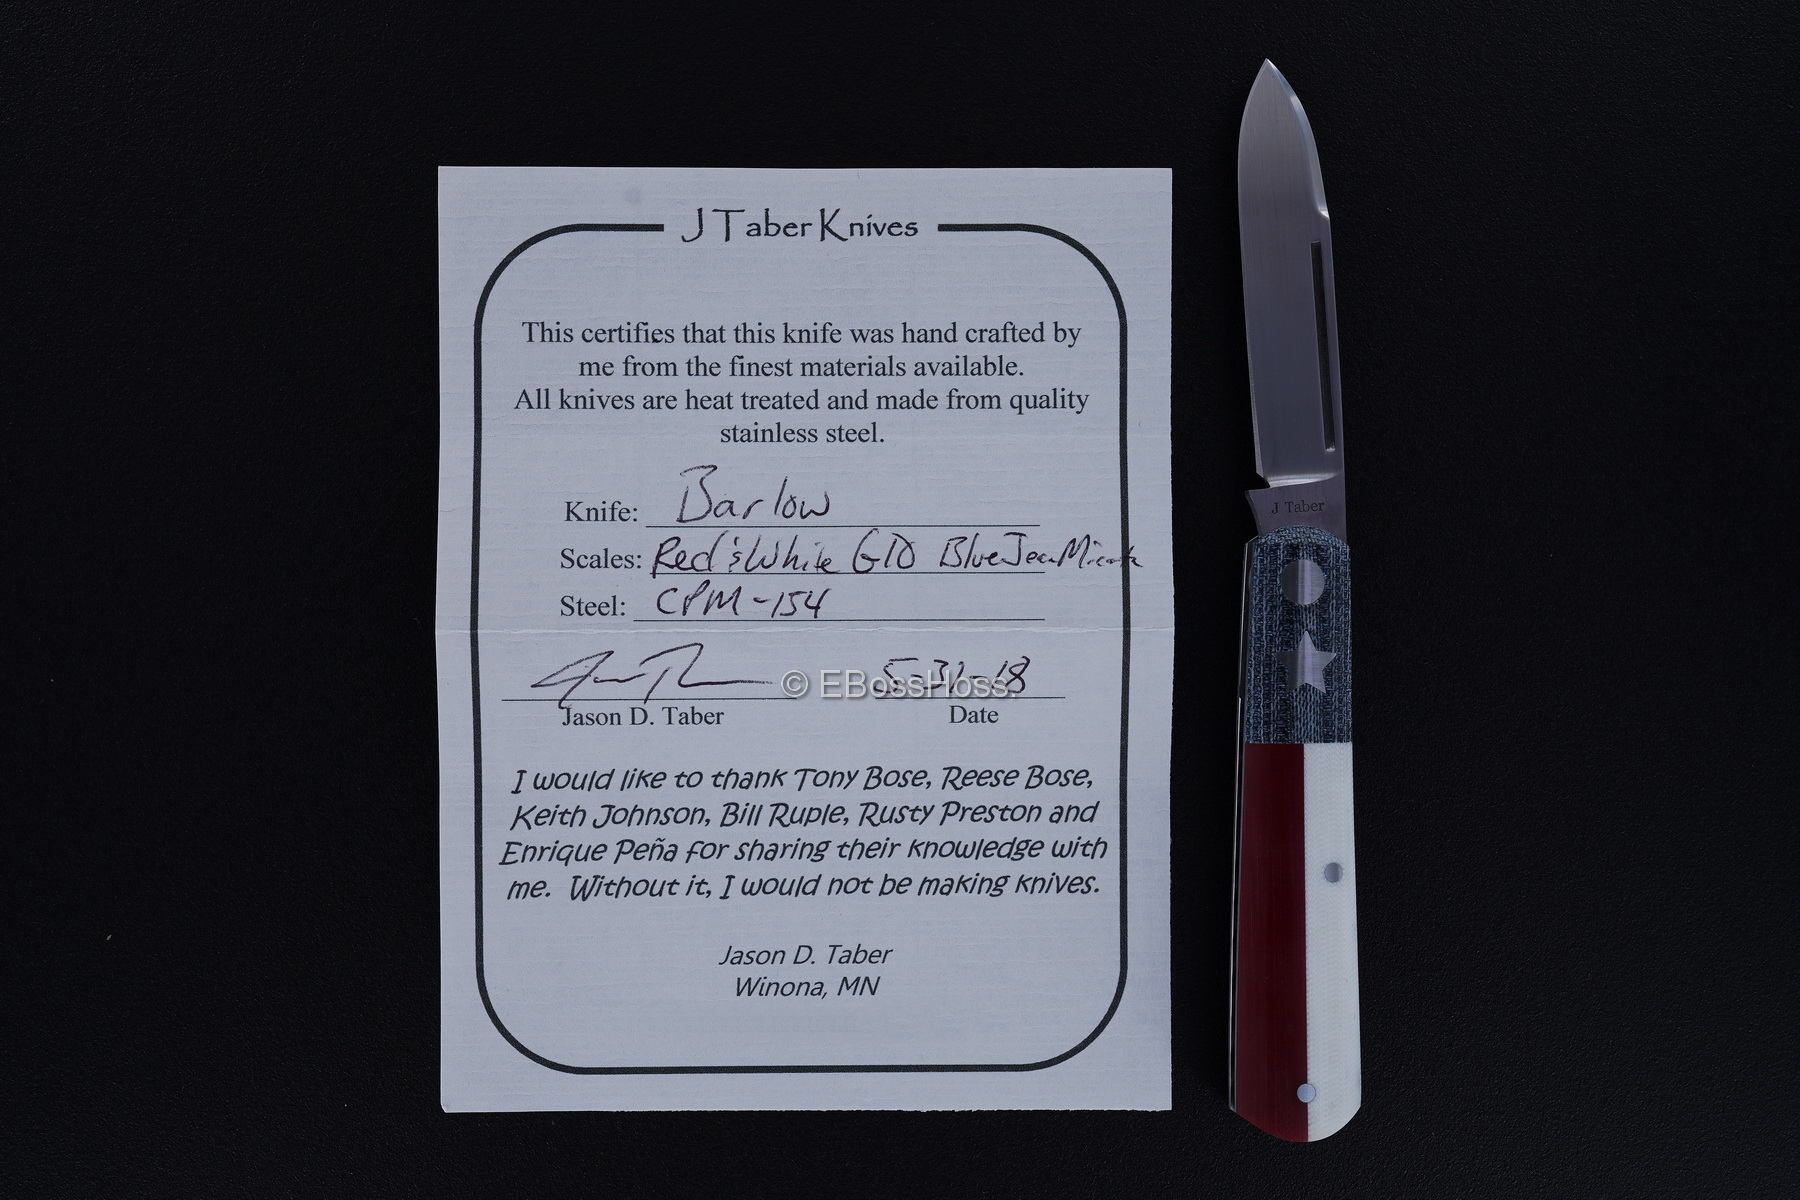 J Taber Knives
This certifies that this knife was hand crafted by
me from the finest materials available.
All knives are heat treated and made from quality
stainless steel.
Knife: Barlow
Scales: Red & White G10 Blue Jean Micarta
Steel: CPM-154
© EBossHoss. 5-31-18
Jason D. Taber Date
I would like to thank Tony Bose, Reese Bose,
Keith Johnson, Bill Ruple, Rusty Preston and
Enrique Peña for sharing their knowledge with
me. Without it, I would not be making knives.
Jason D. Taber
Winona, MN
J Taber